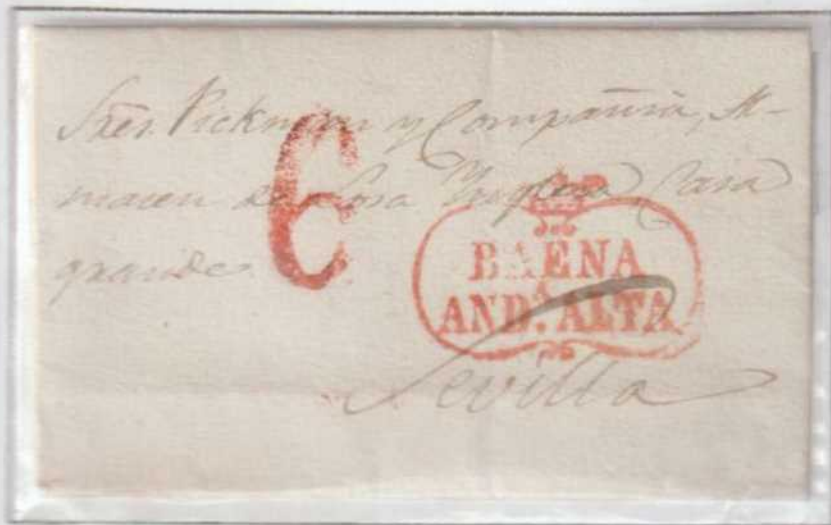 Sres. Pickman y Compañia, Al-
macen de Losa Ynglesa, Casa
grande.
6
BAENA
AND.A ALTA
Sevilla